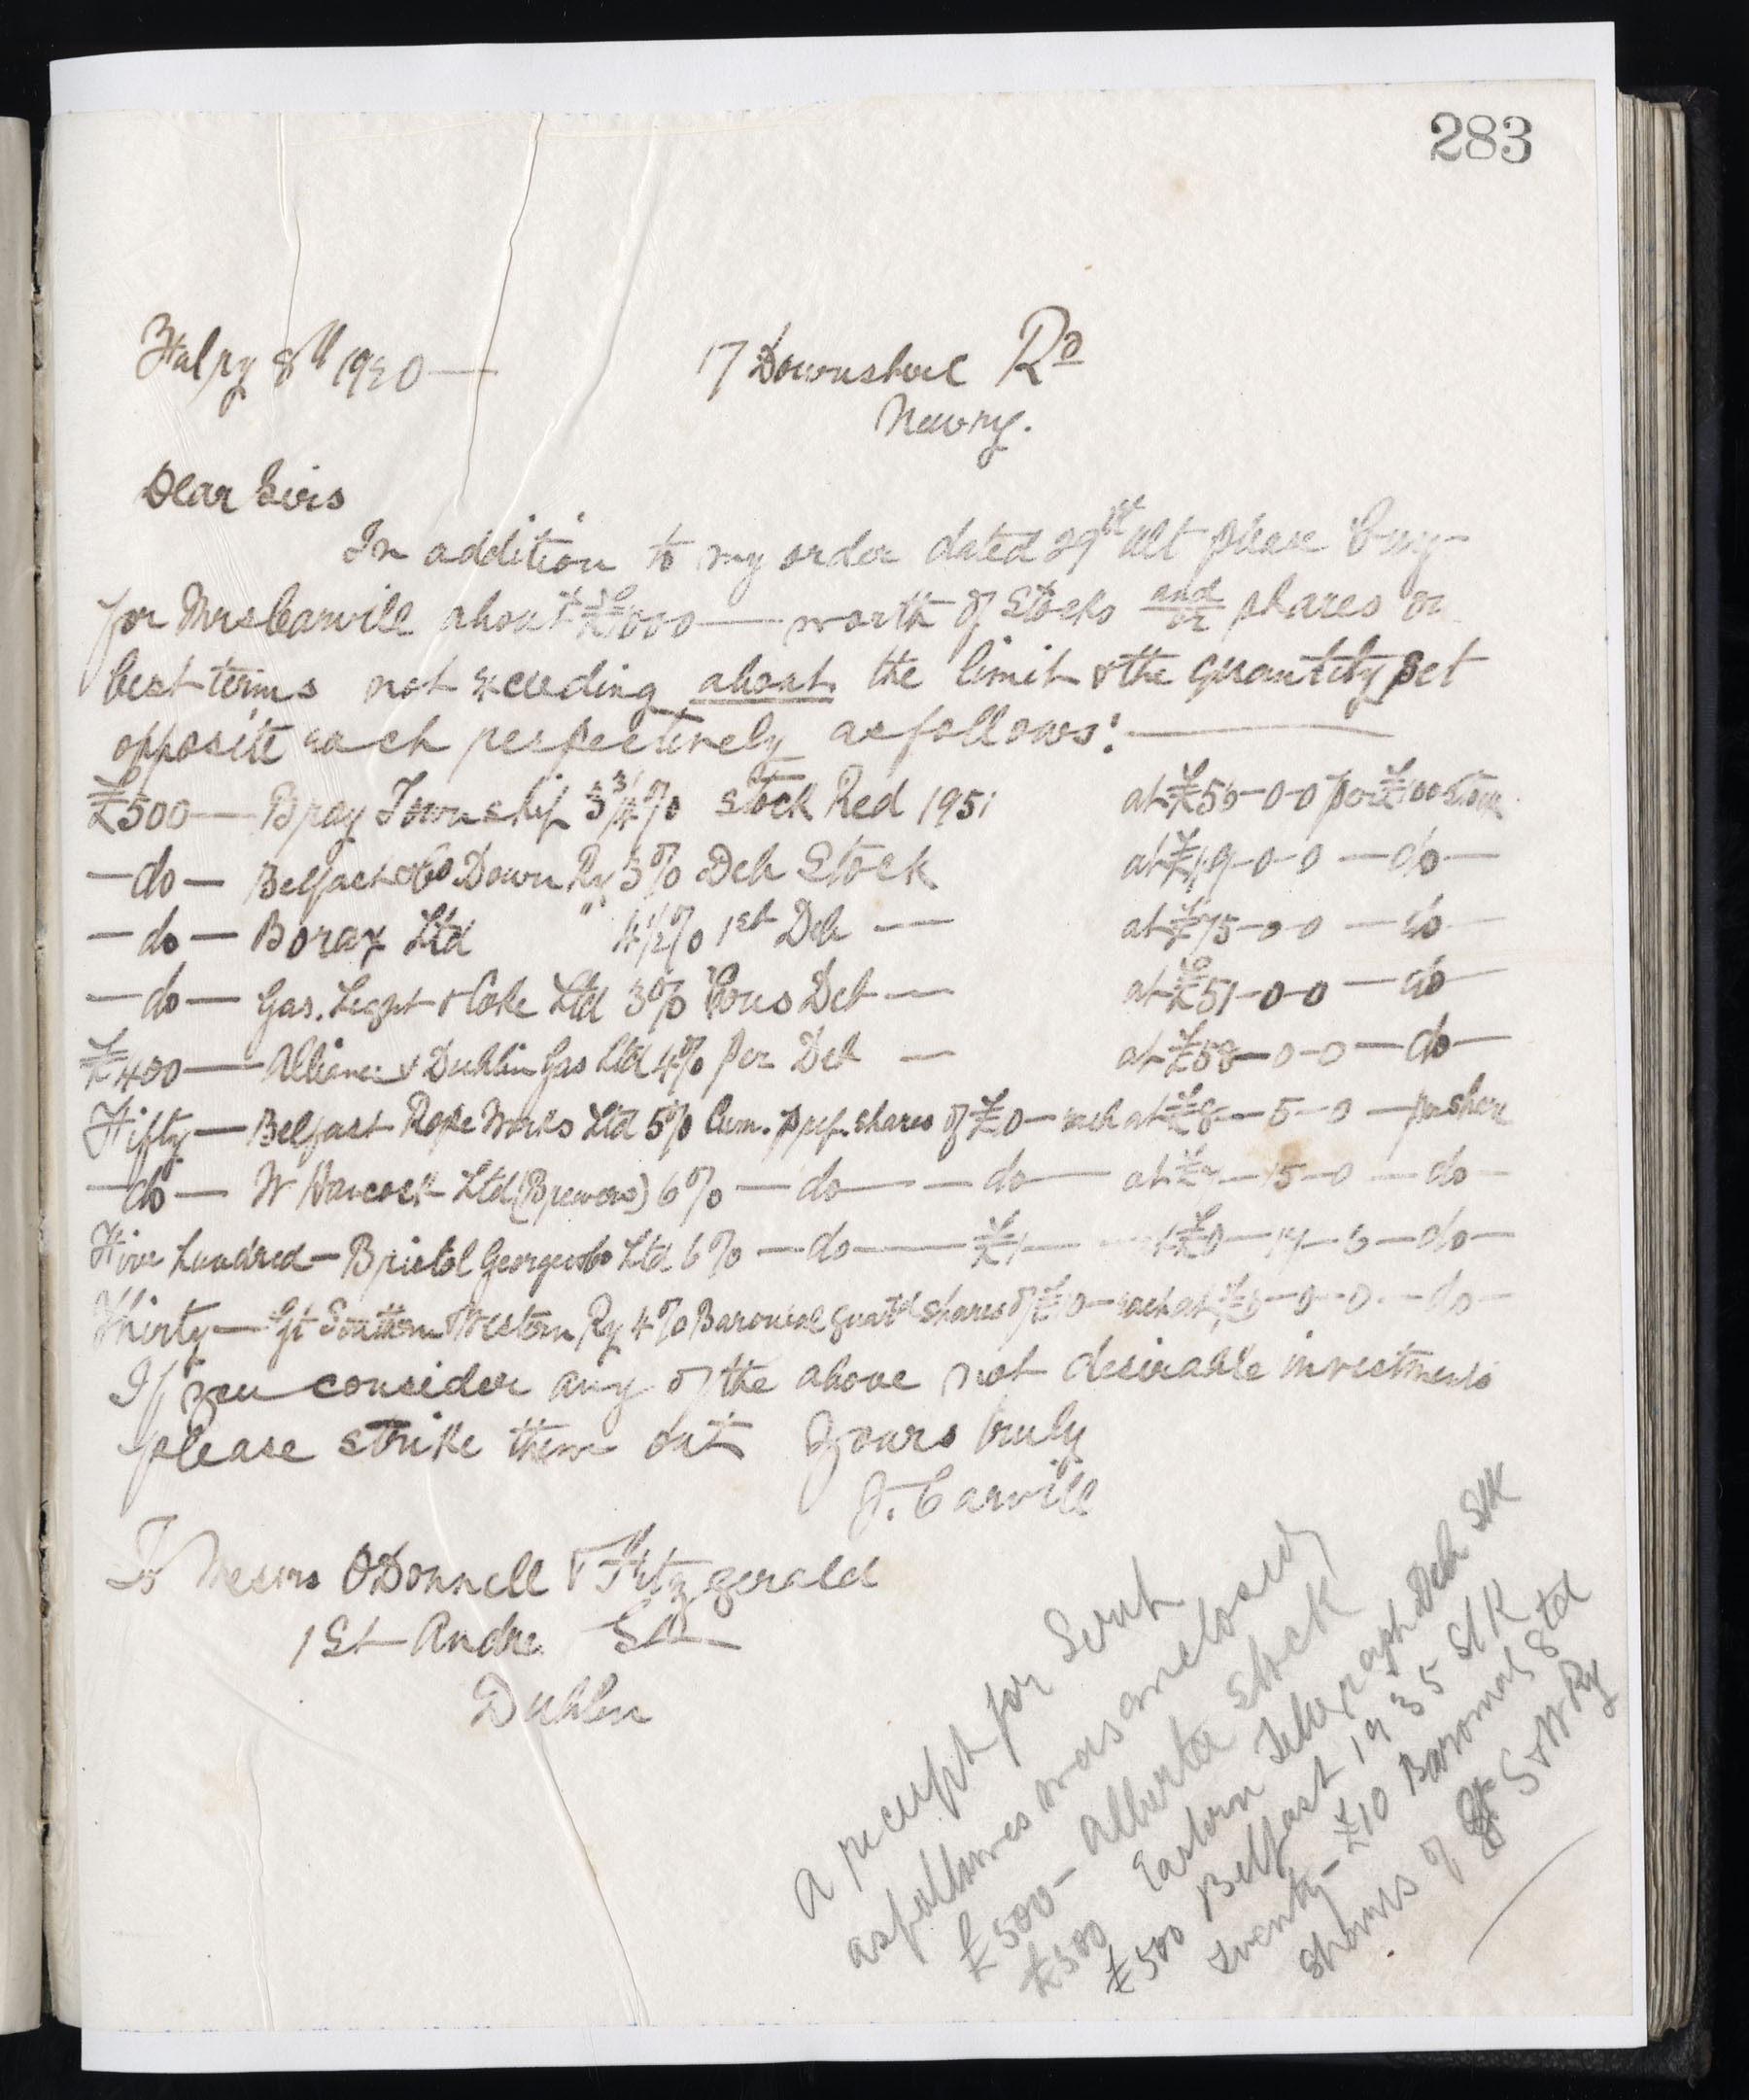 283
8th 1920 — 17 Downshire Rd
Newry.
Dear Sirs
In addition to my order dated 29th ult please buy
for Mrs Carvill about worth of Stocks and/or shares on
best terms not exceeding about the limit & the quantity set
opposite each respectively as follows: —
£500 — Bray Township 3 3/4 % Stock Red 1951 at £56-0-0 per £100 Stock
— do — Belfast & Co Down Ry 3% Deb Stock at £49-0-0 — do —
— do — Borax Ltd 4½% 1st Deb — at £75-0-0 — do —
— do — Gas. Light & Coke Ltd 3% Cons Deb — at £51-0-0 — do —
£400 — Alliance & Dublin Gas Ltd 4% Per Deb — at £58-0-0 — do —
Fifty — Belfast Rope Works Ltd 5% Cum. Pref. shares of each at £8-5-0 — per share
— do — W Hancock Ltd (Brewers) 6% — do — — do — at 15-0 — do —
Five hundred — Bristol Georges Co Ltd 6% — do — £1 — at £0-17-6 — do —
Thirty — Gt Southern Western Ry 4% Baronial Guartd Shares of £10 — each at 0-0 — do —
If you consider any of the above not desirable investments
please strike them out Yours truly
J. Carvill
To Messrs O'Donnell & Fitzgerald
1 St Andre St
Dublin
A receipt for Scrip
as follows was enclosed
£500 - Alberta Stock
£500 Eastern Telegraph Deb Stk
£500 Belfast 1935 Stk
Twenty - £10 Baronial Gtd
Shares of Gt S & W Ry